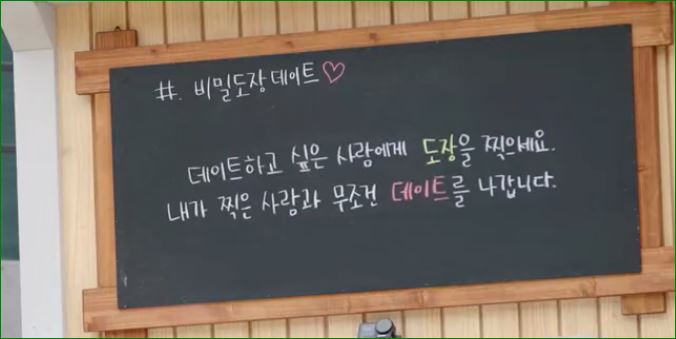 #. 비밀도장데이트♡
데이트하고 싶은 사람에게 도장을 찍으세요.
내가 찍은 사람과 무조건 데이트를 나갑니다.